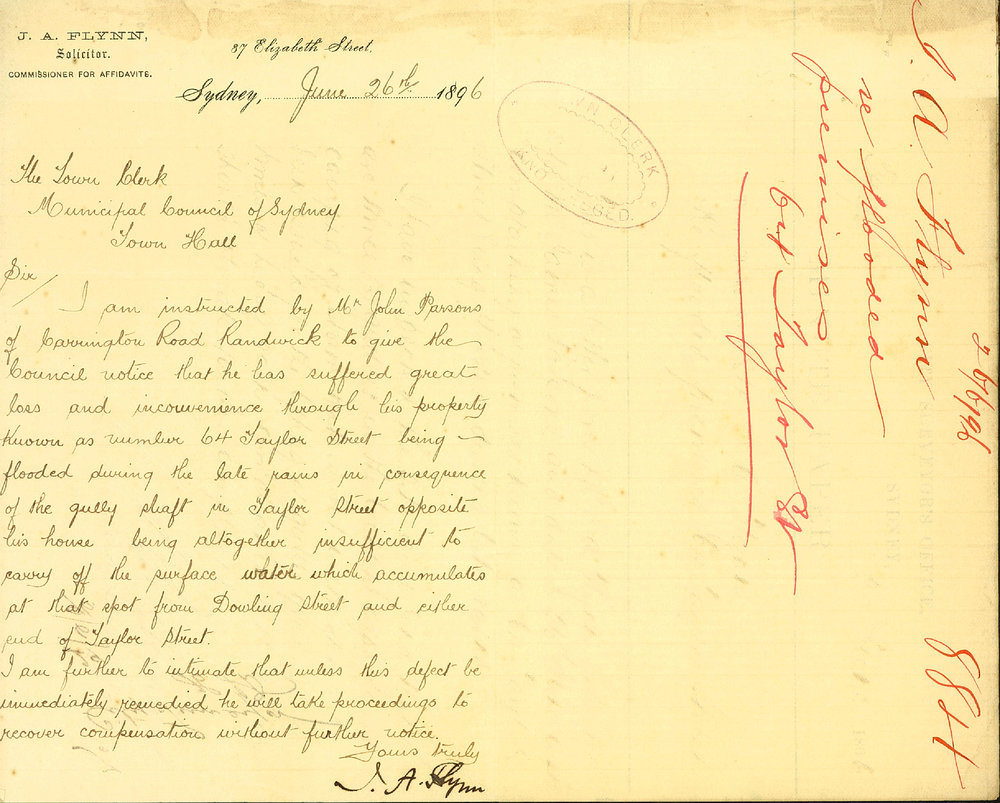 J. A. FLYNN,
Solicitor.
COMMISSIONER FOR AFFIDAVITS.
87 Elizabeth Street,
Sydney, June 26th 1896
The Town Clerk
Municipal Council of Sydney
Town Hall
Sir/
I am instructed by Mr John Parsons
of Carrington Road Randwick to give the
Council notice that he has suffered great
loss and inconvenience through his property
Known as number 64 Taylor Street being
flooded during the late rains in consequence
of the gully shaft in Taylor Street opposite
his house being altogether insufficient to
carry off the surface water which accumulates
at that spot from Dowling Street and either
end of Taylor Street.
I am further to intimate that unless this defect be
immediately remedied he will take proceedings to
recover compensation without further notice.
Yours truly
J. A. Flynn
TOWN CLERK
J. A. Flynn
re flooded
premises
64 Taylor St
26/6/96
884